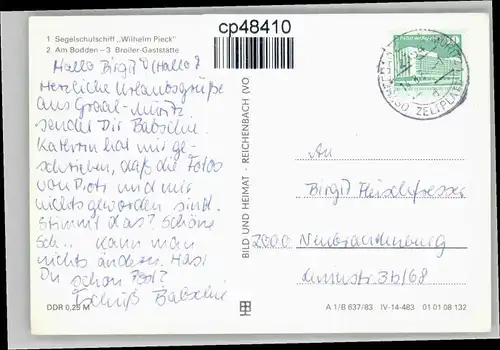 cp48410
1 Segelschulschiff „Wilhelm Pieck"
2 Am Bodden – 3 Broiler-Gaststätte
Hallo Birgit! (Hallo?
Herzliche Urlaubsgrüße
aus Graal-Müritz
sendet Dir Babsche.
Kathrin hat mir ge-
schrieben, daß die Fotos
von Piotr und mir
nichts geworden sind.
Stimmt das? Schöne
Sch.. kann man
nichts ändern. Hast
Du schon Post?
Tschüß Babsche
DDR 0,25 M
BILD UND HEIMAT · REICHENBACH (VO
ZELTPLATZ
An
Birgit Fleischfresser
2000 Neubrandenburg
3b/68
A 1/B 637/83 IV-14-483 01 01 08 132